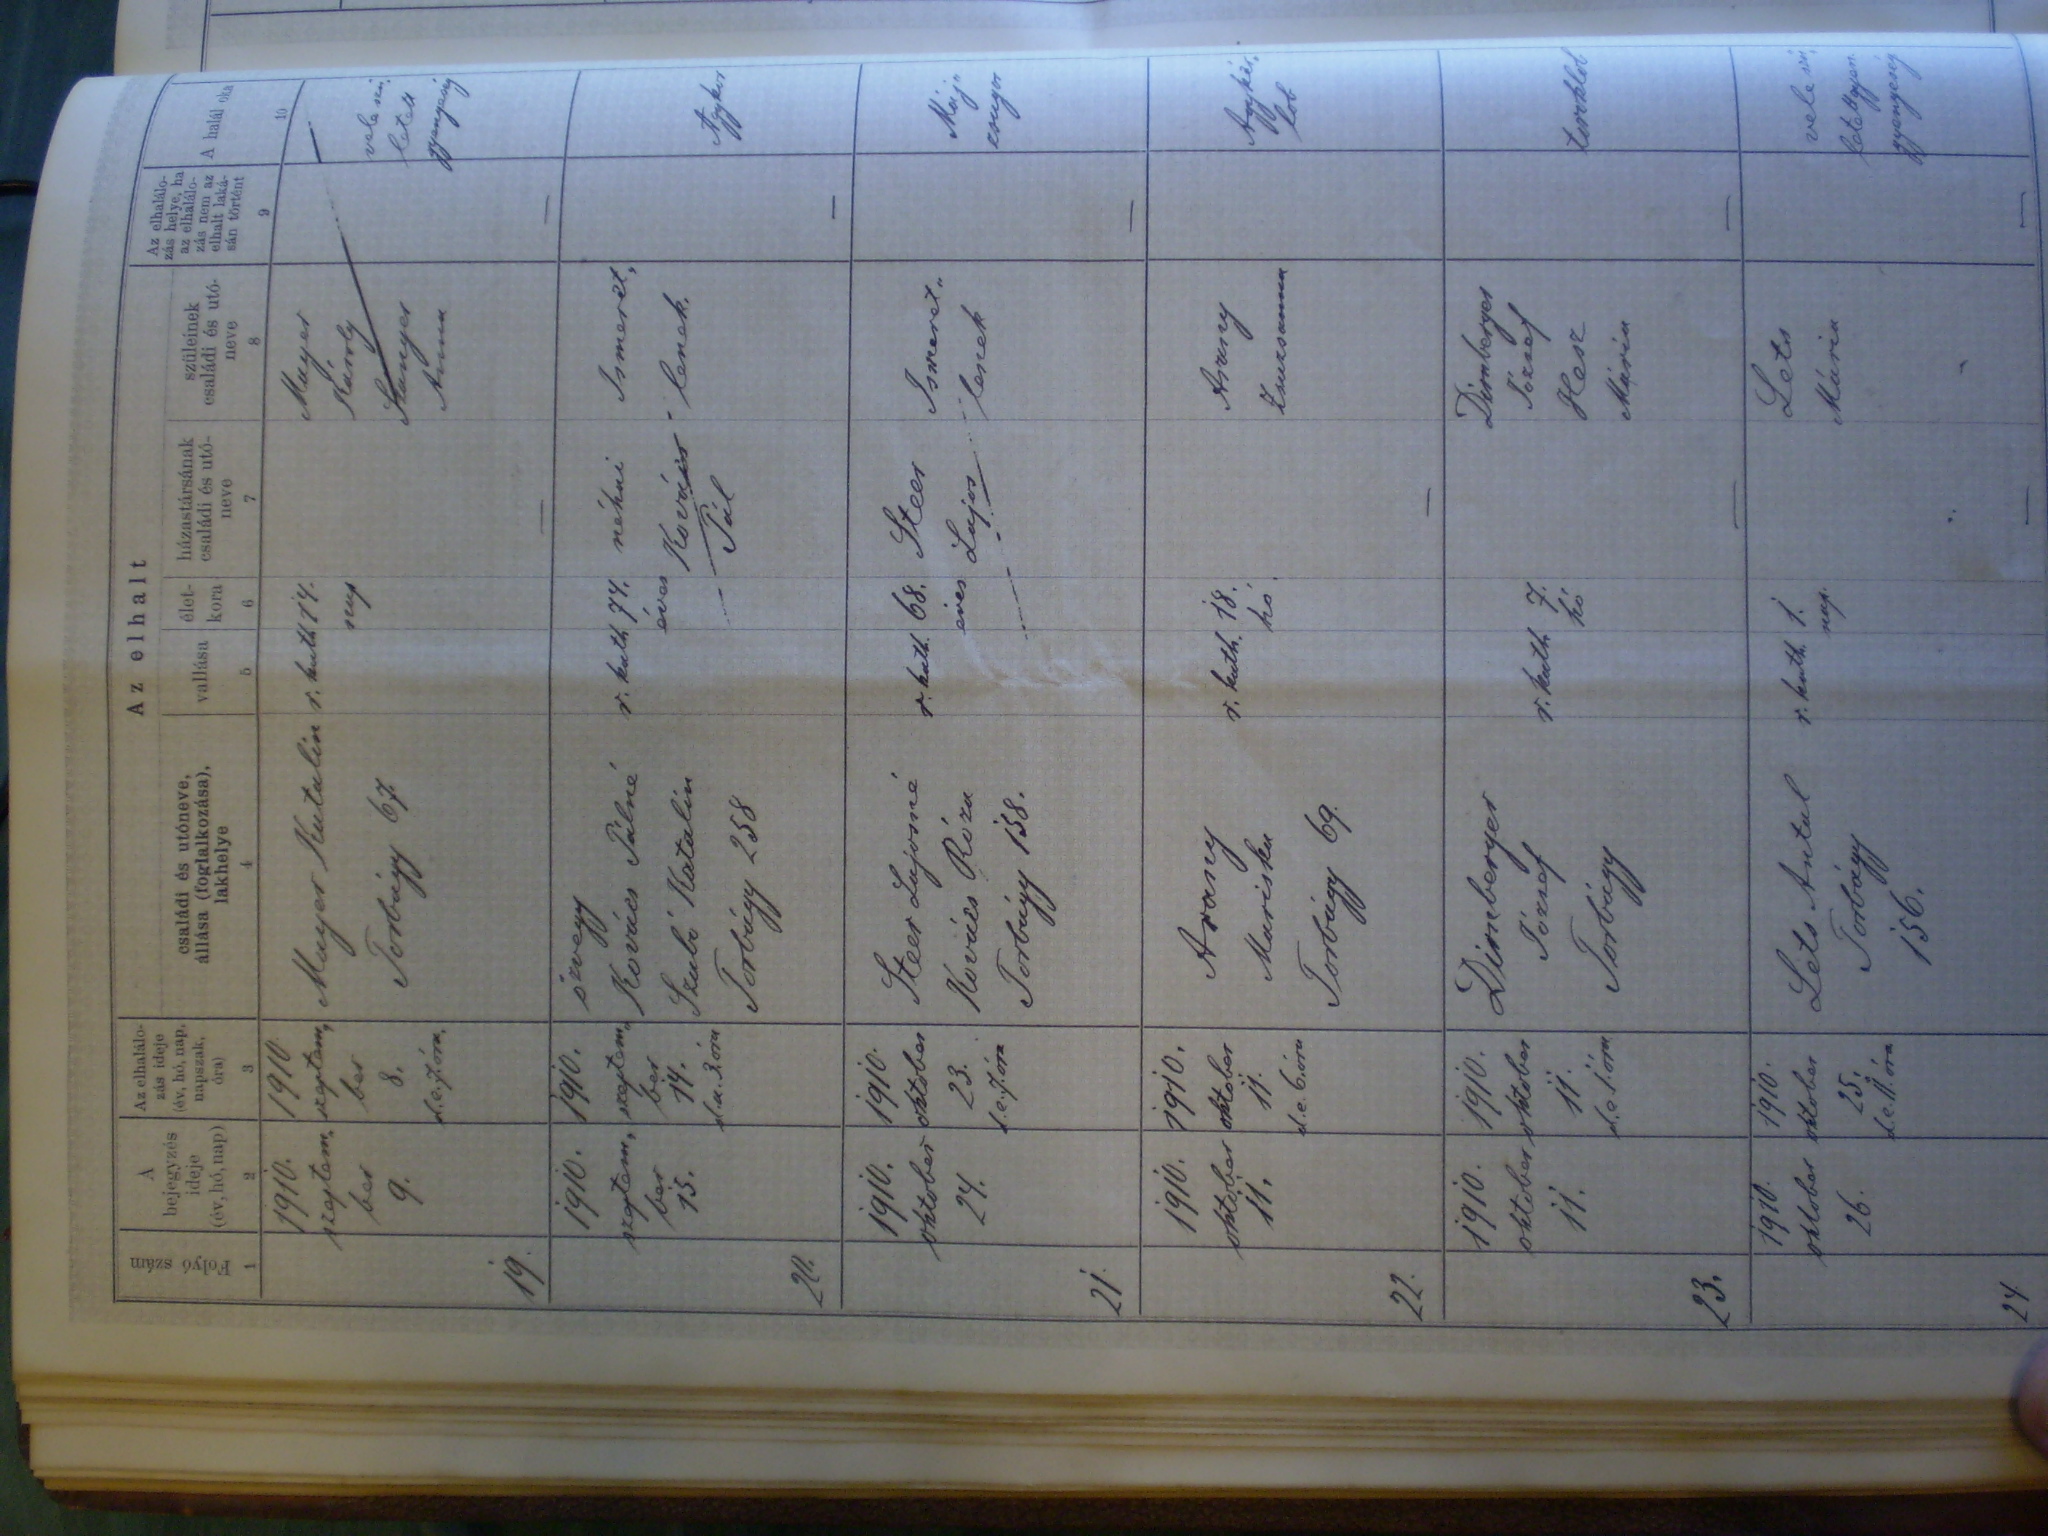 Az elhalt
Folyó
szám
A
bejegyzés
ideje
(év, hó, nap)
Az elhalálo-
zás ideje
(év, hó, nap,
napszak,
óra)
családi és utóneve,
állása (foglalkozása),
lakhelye
vallása
élet-
kora
házastársának
családi és utó-
neve
szüleinek
családi és utó-
neve
Az elhalálo-
zás helye, ha
az elhalálo-
zás nem az
elhalt laká-
sán történt
A halál oka
1 2 3 4 5 6 7 8 9 10
19.
1910.
szeptem,
ber
9.
1910
szeptem,
ber
8.
d.e. 7. óra.
Mayer Katalin
Torbágy 67.
r. kath.
14.
nap
—
Mayer
Károly
Anna
—
vele szü,
letett
gyengeség
20.
1910.
szeptem,
ber
15.
1910.
szeptem,
ber
14.
d.u. 3. óra
özvegy
Kovács Pálné
Szabó Katalin
Torbágy 258
r. kath.
74.
éves
néhai
Kovács
Pál
Ismeret,
lenek.
—
Aggkor
21.
1910.
oktober
24.
1910.
oktober
23.
d.e. 7. óra
Steer Lajosné
Kovács Róza
Torbágy 158.
r. kath.
68.
éves
Steer
Lajos
Ismeret„
lenek
—
Máj„
zsugor
22.
1910.
oktober
11.
1910.
oktober
11.
d.e. 6. óra
Arany
Mariska
Torbágy 69.
r. kath.
18.
hó.
—
Arany
Zsuzsanna
—
lob
23.
1910.
oktober
11.
1910.
oktober
11.
d.e. 1. óra
Dirnberger
József
Torbágy
r. kath.
7.
hó
—
Dirnberger
József
Hesz
Mária
—
toroklob
24
1910.
oktober
26.
1910.
oktober
25.
d.e. 11. óra
Léts Antal
Torbágy
156.
r. kath.
1.
nap.
—
Léts
Mária
—
vele szü,
gyengeség